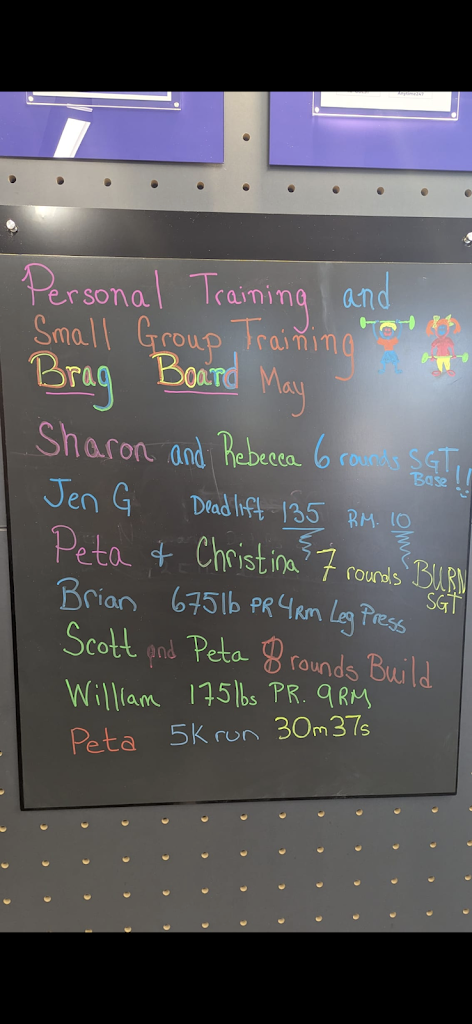 Personal Training and
Small Group Training
Brag Board May
Sharon and Rebecca 6 rounds SGT
Base!!
Jen G Deadlift 135 RM. 10
Peta & Christina 7 rounds BURN
SGT
Brian 675lb PR 4RM Leg Press
Scott and Peta 8 rounds Build
William 175lbs PR. 9RM
Peta 5K run 30m37s